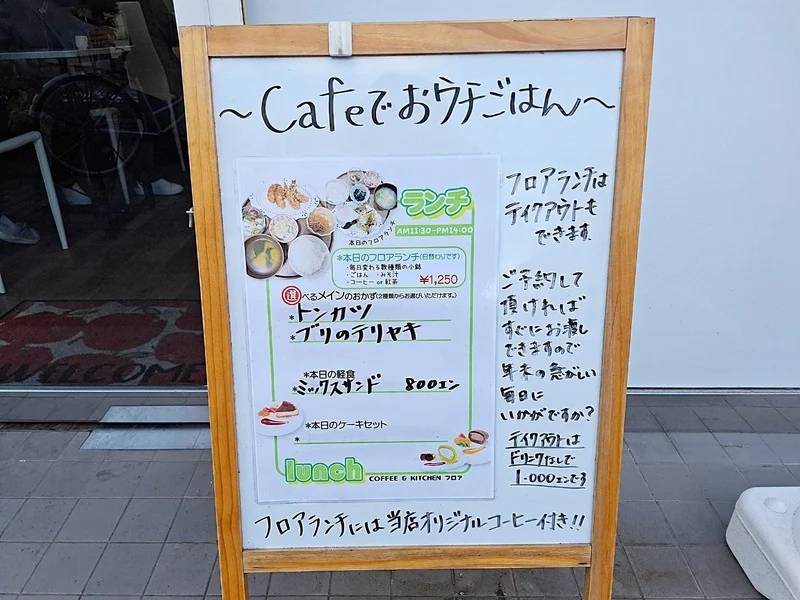 ～Cafeでおウチごはん～
ランチ
AM11:30-PM14:00
本日のフロアランチ
*本日のフロアランチ(日替わりです)
・毎日変わる数種類の小鉢
・ごはん ・みそ汁
・コーヒー or 紅茶 ¥1,250
選べるメインのおかず(2種類からお選びいただけます。)
*トンカツ
*ブリのテリヤキ
*本日の軽食
*ミックスサンド 800エン
*本日のケーキセット
*
lunch COFFEE & KITCHEN フロア
フロアランチは
テイクアウトも
できます.
ご予約して
頂ければ
すぐにお渡し
できますので
年末の忽がしい
毎日に
いかがですか?
テイクアウトは
ドリンクなしで
1.000エンです
フロアランチには当店オリジナルコーヒー付き!!
WELCOME